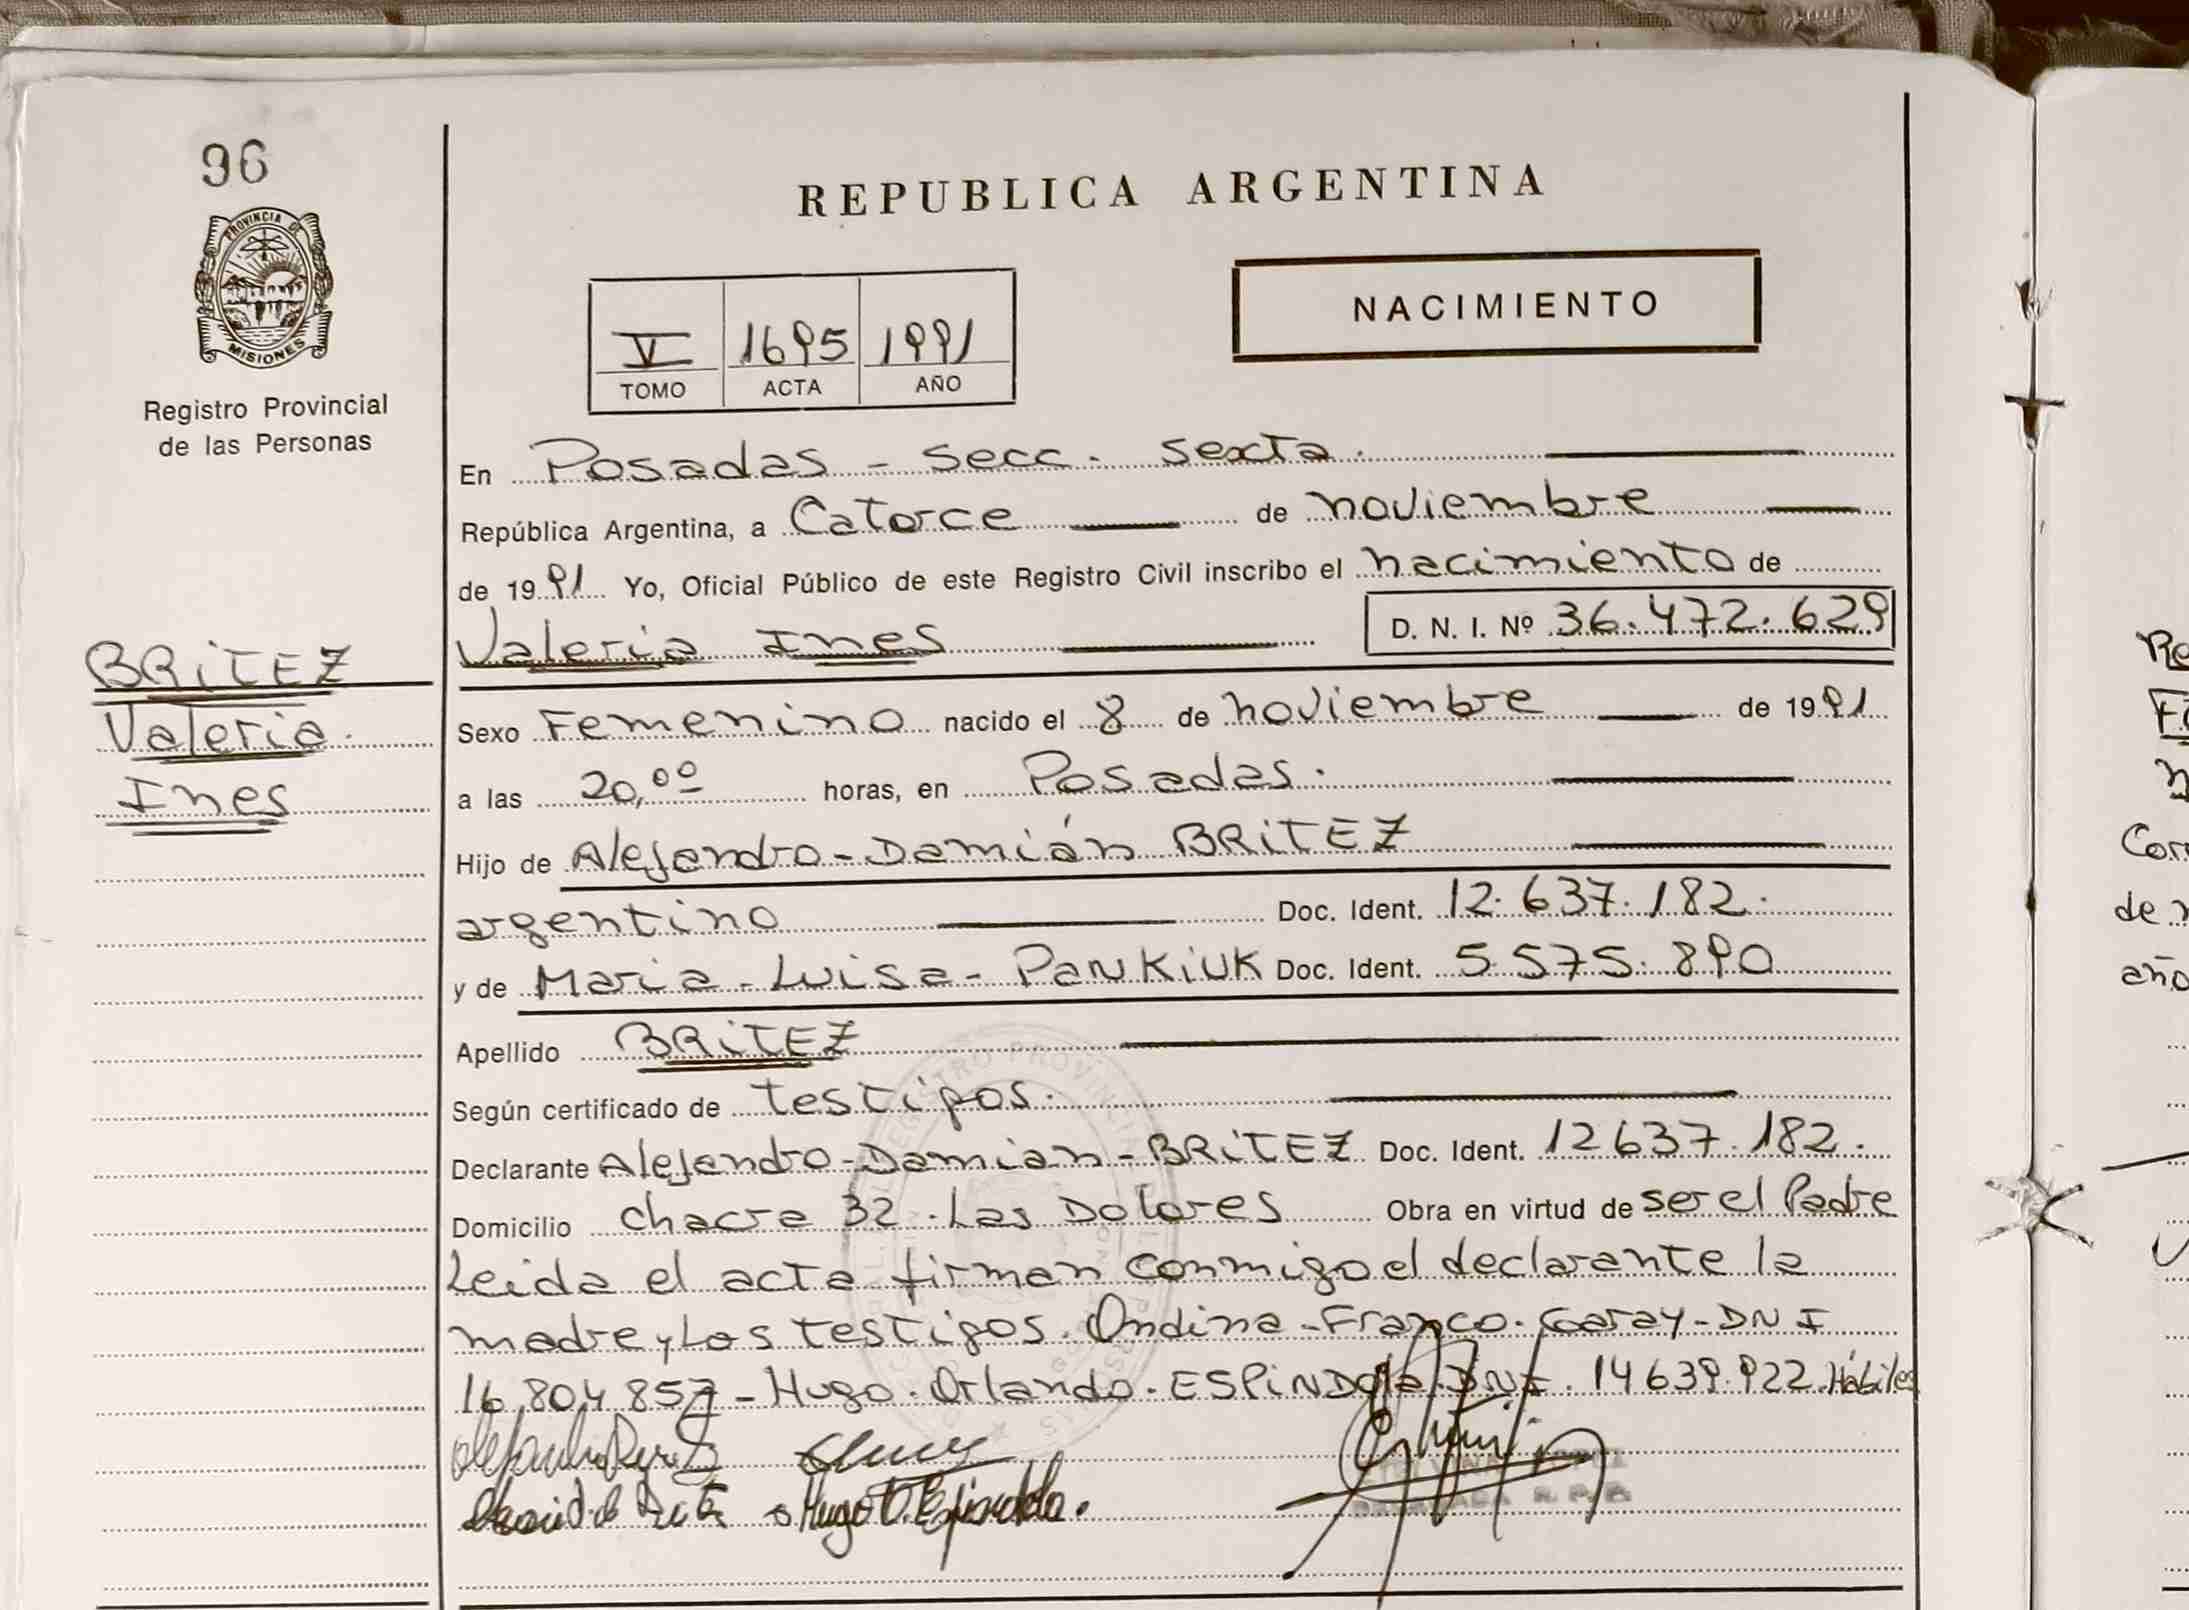 96
PROVINCIA DE
MISIONES
Registro Provincial
de las Personas
BRITEZ
Valeria
Ines
REPUBLICA ARGENTINA
NACIMIENTO
V 1695 1991
TOMO ACTA AÑO
En Posadas - Secc. Sexta.
República Argentina, a Catorce de noviembre
de 1991 Yo, Oficial Público de este Registro Civil inscribo el nacimiento de
Valeria Ines D. N. I. Nº 36.472.629
Sexo Femenino nacido el 8 de noviembre de 1991
a las 20,00 horas, en Posadas.
Hijo de Alejandro-Damián BRITEZ
argentino Doc. Ident. 12.637.182.
y de Maria-Luisa-PANKIUK Doc. Ident. 5.575.890
Apellido BRITEZ
Según certificado de testigos.
Declarante Alejandro-Damian-BRITEZ Doc. Ident. 12637.182.
Domicilio chacra 32. Las Dolores Obra en virtud de ser el Padre
Leida el acta firman conmigo el declarante la
madre y Los testigos. Ondina-Franco. Garay-DNI
16.804.857-Hugo.Orlando.ESPINDOLA.DNI. 14639.922.Hábiles
Hugo O. Espindola.
R. P. P.
Re
Co
de
año